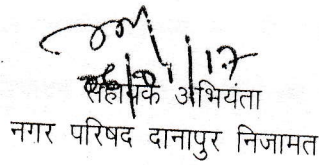 सहायक अभियंता
नगर परिषद दानापुर निजामत